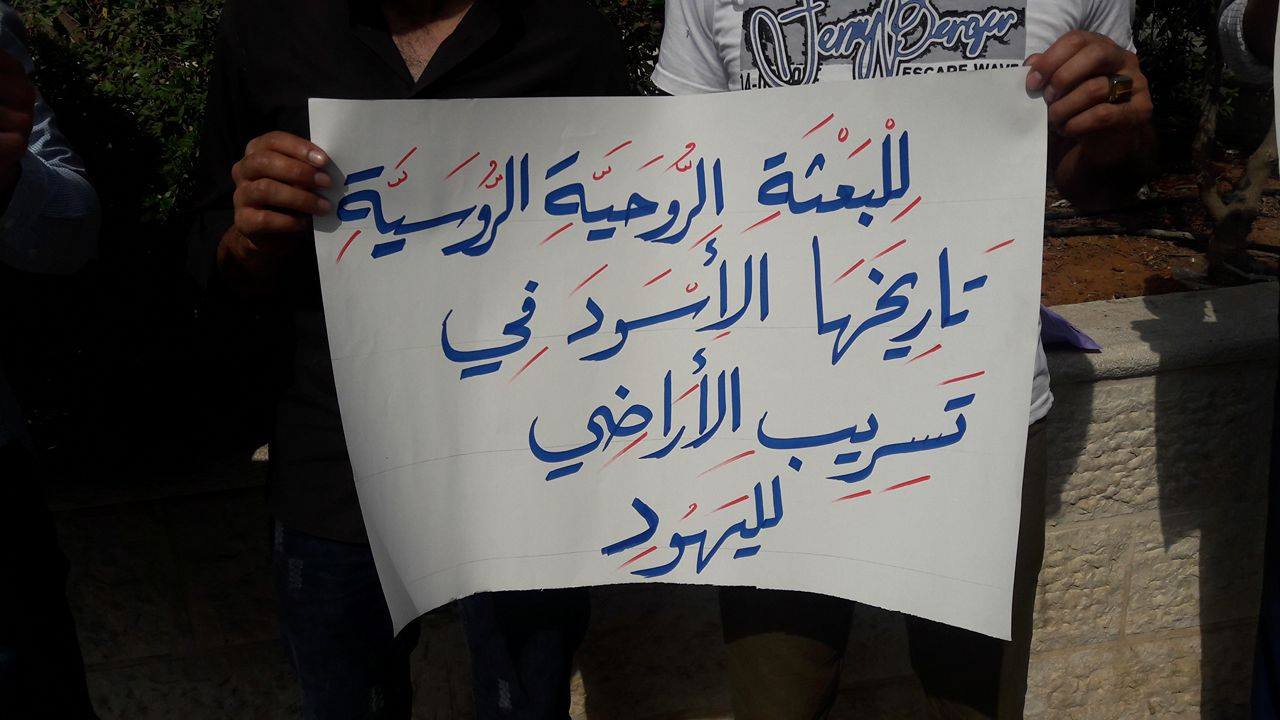 Jerry Berger
ESCAPE WAVE
لِلْبَعْثَةِ الرُّوحِيَّةِ الرُّوسِيَّةِ
تَارِيخَهَا الأَسْوَدَ فِي
تَسرِيبِ الأَرَاضِي
لليَهُودِ